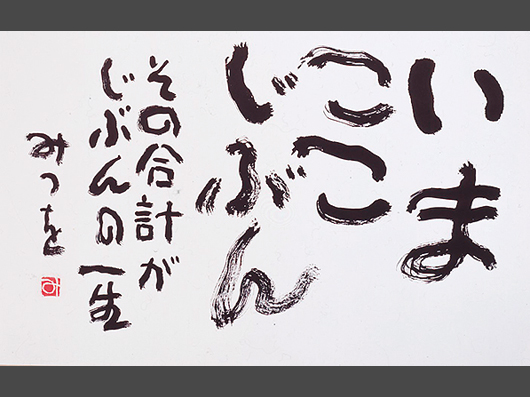 いま
ここ
じぶん
その合計が
じぶんの一生
みつを
み